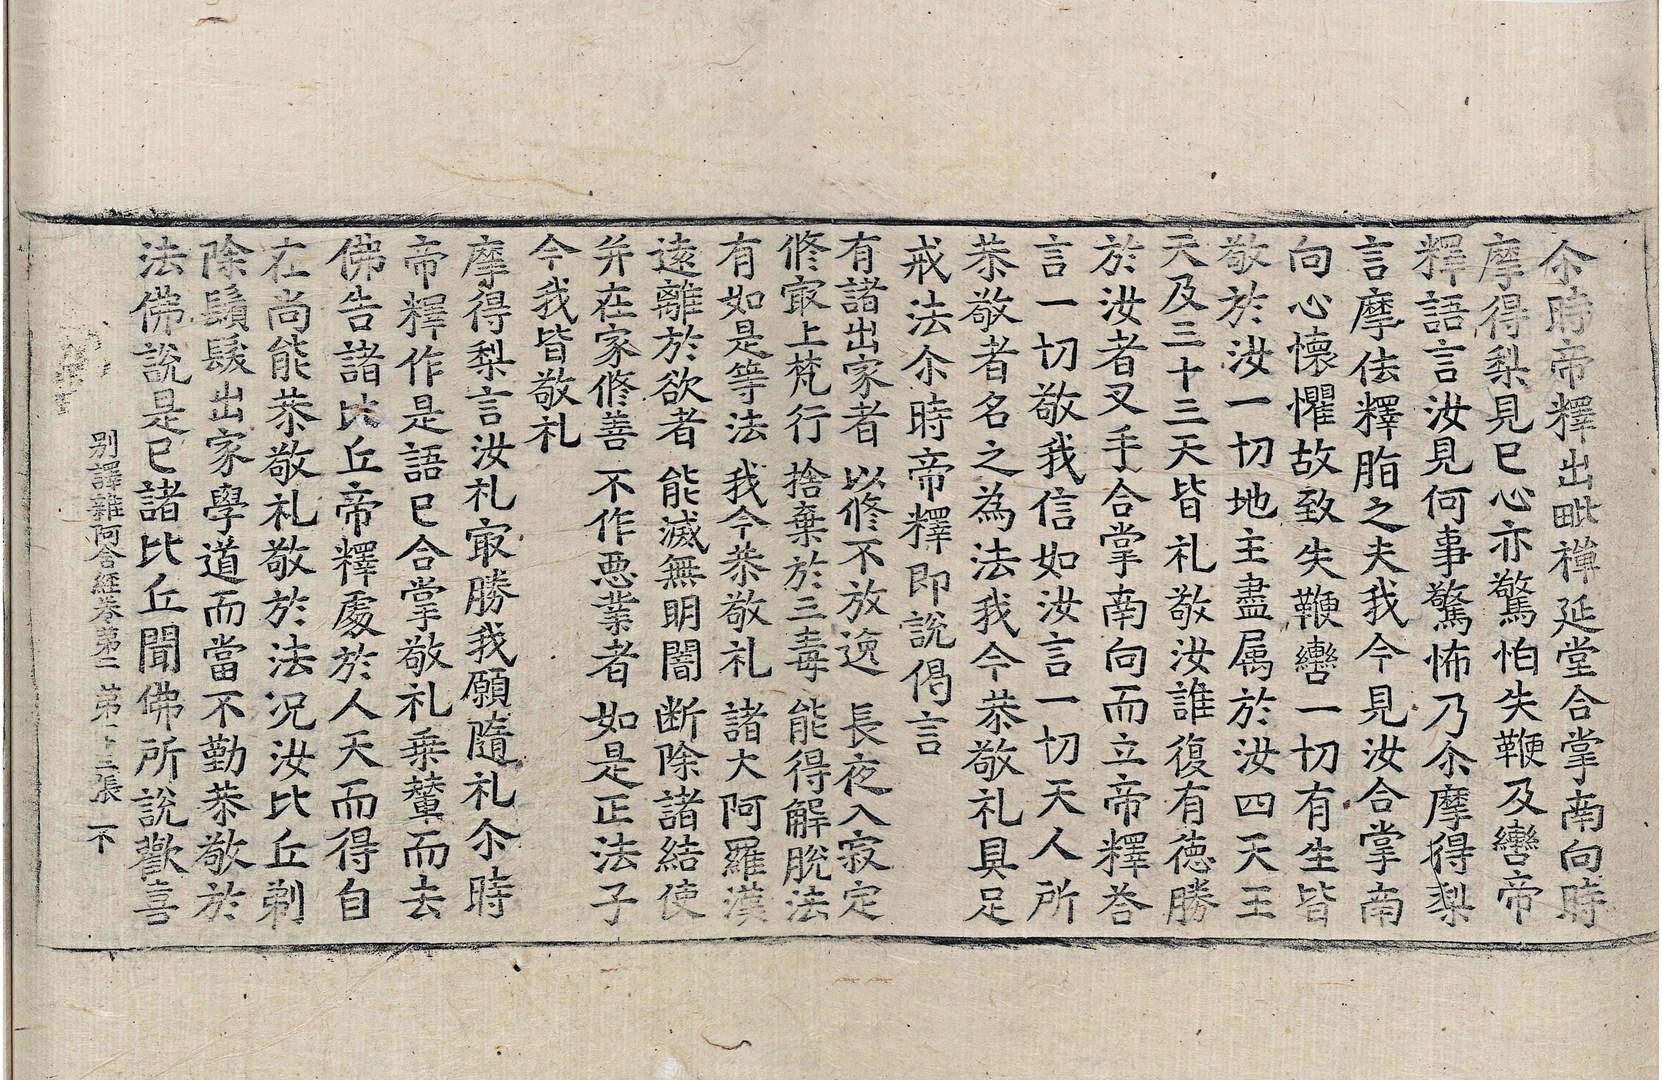 尒時帝釋出毗禅延堂合掌南向時
摩得梨見已心亦驚怕失鞭及轡帝
釋語言汝見何事驚怖乃尒摩得梨
言摩佉釋脂之夫我今見汝合掌南
向心懷懼故致失鞭轡一切有生皆
敬於汝一切地主盡属於汝四天王
天及三十三天皆礼敬汝誰復有徳勝
於汝者叉手合掌南向而立帝釋荅
言一切敬我信如汝言一切天人所
恭敬者名之為法我今恭敬礼具足
戒法尒時帝釋即說偈言
有諸出家者 以修不放逸 長夜入寂定
修㝡上梵行 捨棄於三毒 能得解脫法
有如是等法 我今恭敬礼 諸大阿羅漢
遠離於欲者 能滅無明闇 断除諸結使
并在家修善 不作惡業者 如是正法子
今我皆敬礼
摩得梨言汝礼㝡勝我願隨礼尒時
帝釋作是語已合掌敬礼乗輦而去
佛告諸比丘帝釋處於人天而得自
在尚能恭敬礼敬於法况汝比丘剃
除鬚髮出家學道而當不勤恭敬於
法佛說是已諸比丘聞佛所說歡喜
別譯雜阿含經卷第二 第十三張 下